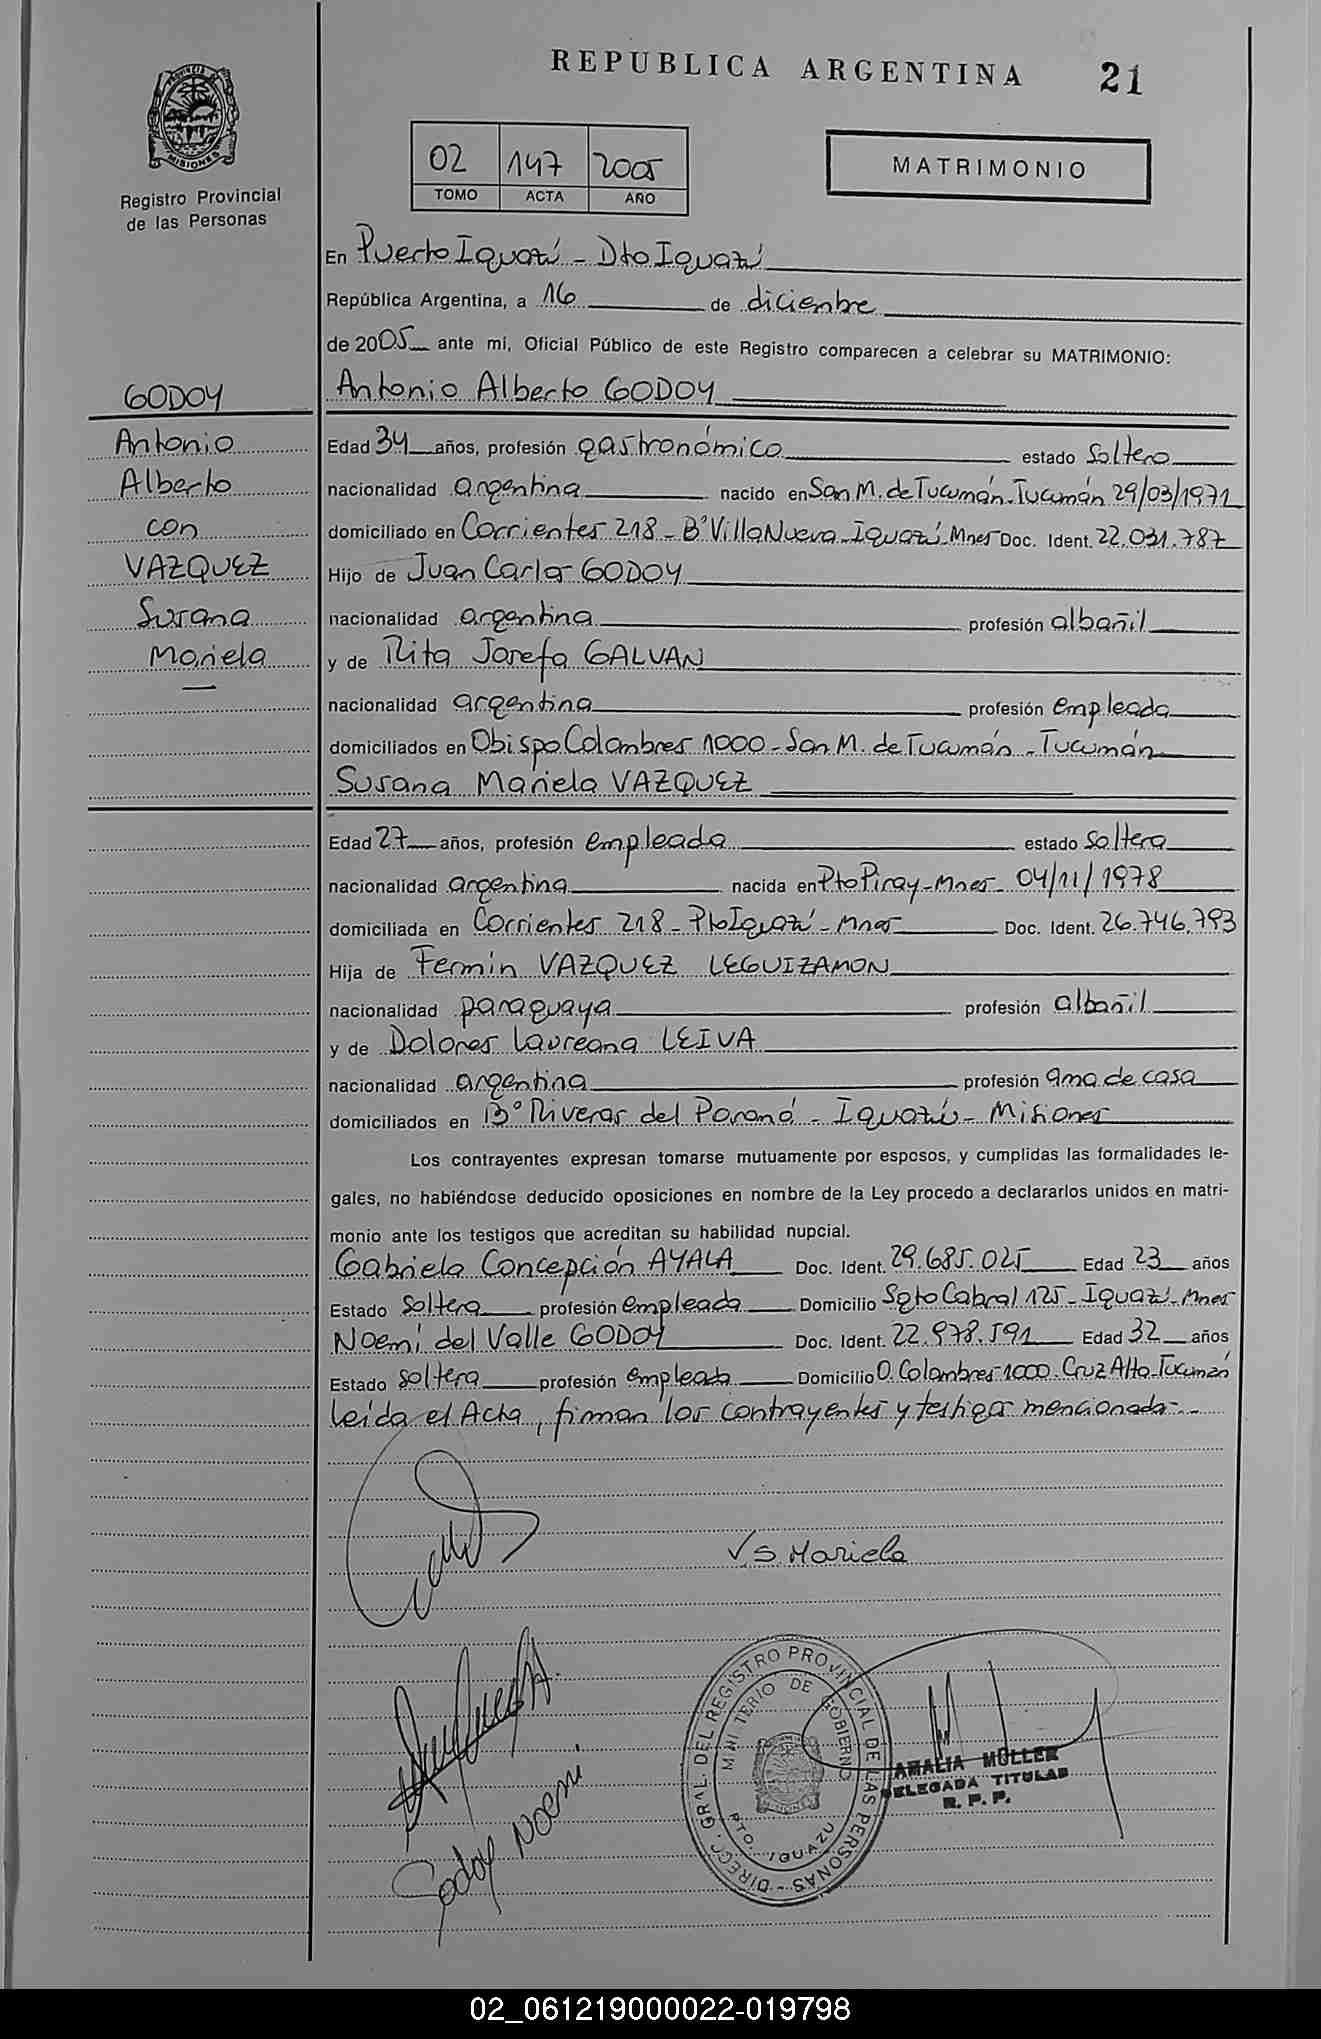 REPUBLICA ARGENTINA 21
PROVINCIA DE MISIONES
Registro Provincial
de las Personas
02 147 2005
TOMO ACTA AÑO
MATRIMONIO
En Puerto Iguazú - Dto Iguazú
República Argentina, a 16 de diciembre
de 2005 ante mí, Oficial Público de este Registro comparecen a celebrar su MATRIMONIO:
GODOY
Antonio
Alberto
con
VAZQUEZ
Susana
Mariela
Antonio Alberto GODOY
Edad 34 años, profesión gastronómico estado Soltero
nacionalidad argentina nacido en San M. de Tucumán-Tucumán 29/03/1971
domiciliado en Corrientes 218 - B° Villa Nueva - Iguazú - Mnes Doc. Ident. 22.031.787
Hijo de Juan Carlos GODOY
nacionalidad argentina profesión albañil
y de Rita Josefa GALVAN
nacionalidad argentina profesión empleada
domiciliados en Obispo Colombres 1000 - San M. de Tucumán - Tucumán
Susana Mariela VAZQUEZ
Edad 27 años, profesión empleada estado soltera
nacionalidad argentina nacida en Pto Piray - Mnes - 04/11/1978
domiciliada en Corrientes 218 - Pto Iguazú - Mnes Doc. Ident. 26.746.793
Hija de Fermin VAZQUEZ LEGUIZAMON
nacionalidad paraguaya profesión albañil
y de Dolores Laureana LEIVA
nacionalidad argentina profesión ama de casa
domiciliados en B° Riveras del Paraná - Iguazú - Misiones
Los contrayentes expresan tomarse mutuamente por esposos, y cumplidas las formalidades le-
gales, no habiéndose deducido oposiciones en nombre de la Ley procedo a declararlos unidos en matri-
monio ante los testigos que acreditan su habilidad nupcial.
Gabriela Concepción AYALA Doc. Ident. 29.685.025 Edad 23 años
Estado soltera profesión empleada Domicilio Sgto Cabral 125 - Iguazú - Mnes
Noemí del Valle GODOY Doc. Ident. 22.978.591 Edad 32 años
Estado soltera profesión empleada Domicilio O. Colombres 1000. Cruz Alta - Tucumán
leída el Acta, firman los contrayentes y testigos mencionados -
V S Mariela
Godoy Noemi
DIRECC. GRAL. DEL REGISTRO PROVINCIAL DE LAS PERSONAS
MINISTERIO DE GOBIERNO
PTO. IGUAZU
AMALIA MÜLLER
DELEGADA TITULAR
R. P. P.
02_061219000022-019798